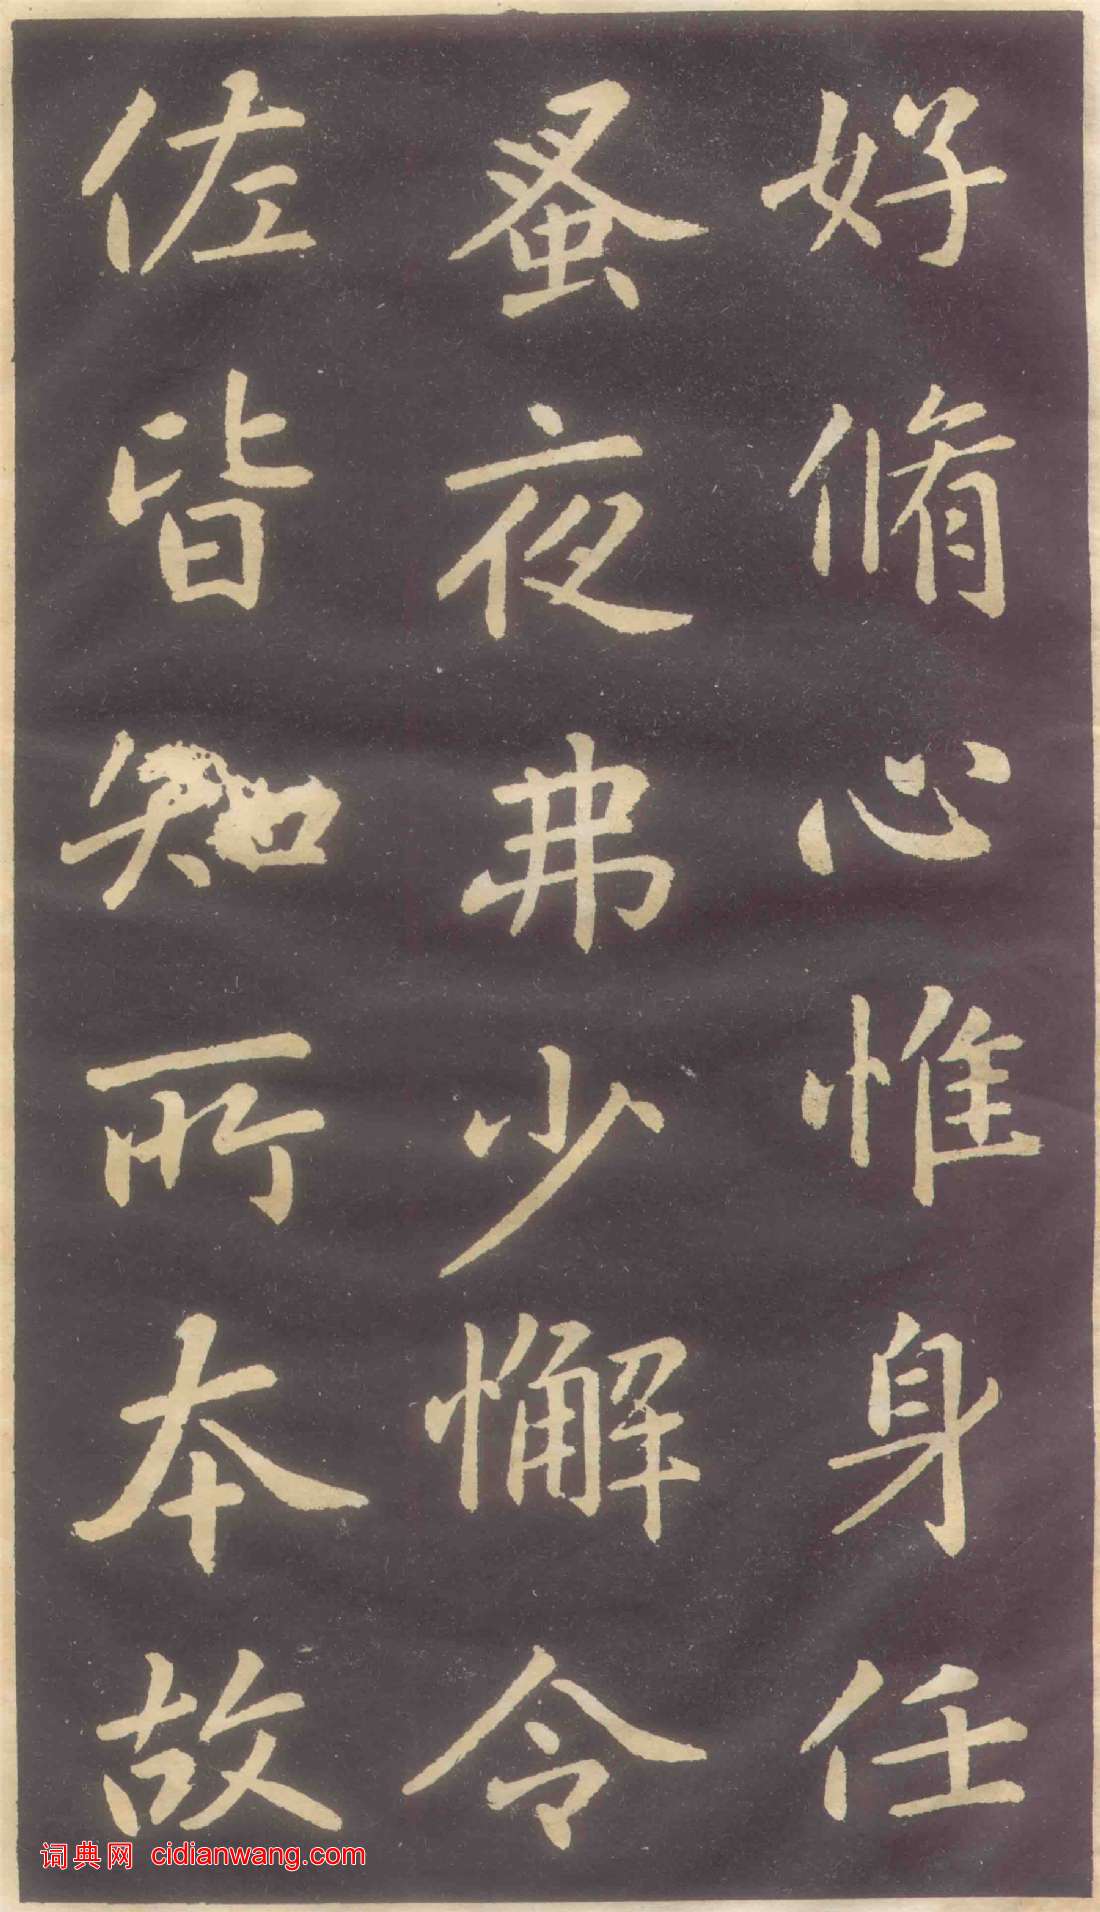 好脩心惟身任
蚤夜弗少懈令
佐皆知所本故
词典网 cidianwang.com